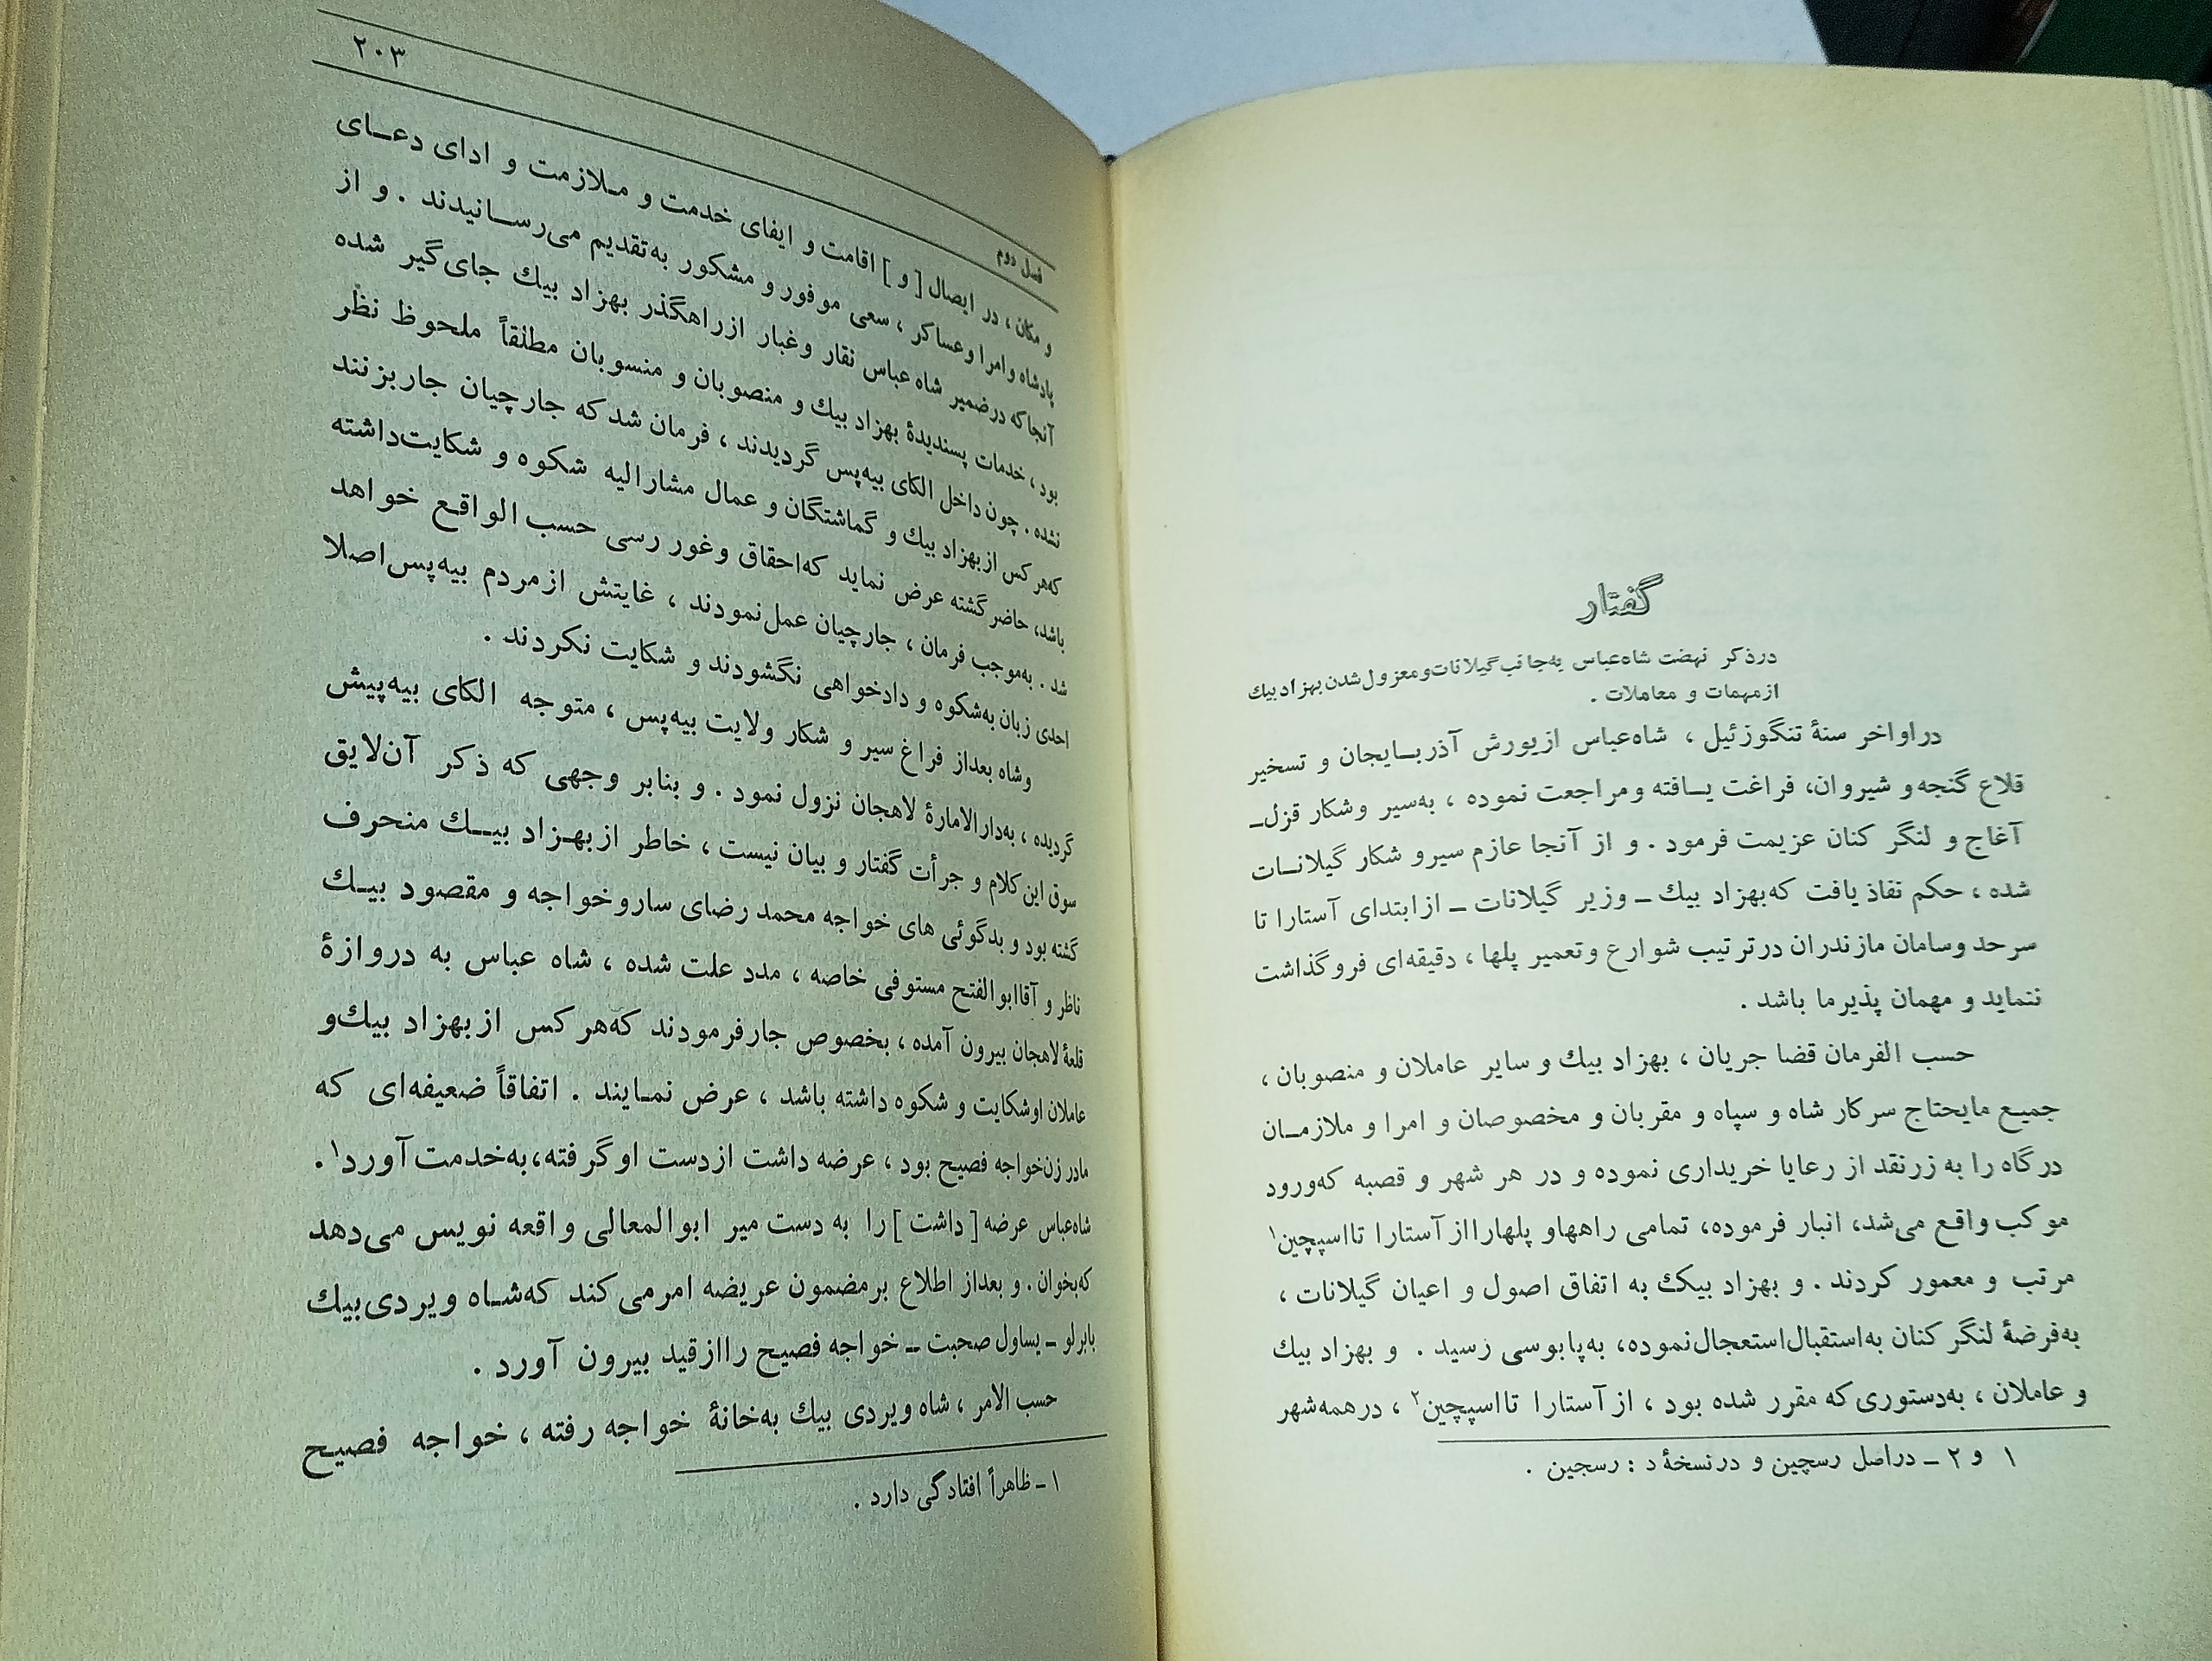 گفتار
درذکر نهضت شاه‌عباس به‌جانب‌گیلانات‌ومعزول‌شدن‌بهزاد‌بیك
ازمهمات و معاملات .
دراواخر سنهٔ تنگوزئیل ، شاه‌عباس ازیورش آذربـایجان و تسخیر
قلاع گنجه‌و شیروان، فراغت یـافته ومراجعت نموده ، به‌سیر وشکار قزل‌ـ
آغاج و لنگر کنان عزیمت فرمود . و از آنجا عازم سیرو شکار گیلانـات
شده ، حکم نفاذ یافت که‌بهزاد بیك ـ وزیر گیلانات ـ ازابتدای آستارا تا
سرحد وسامان مازندران درترتیب شوارع وتعمیر پلها ، دقیقه‌ای فروگذاشت
ننماید و مهمان پذیرما باشد .
حسب الفرمان قضا جریان ، بهزاد بیك و سایر عاملان و منصوبان ،
جمیـع مایحتاج سرکار شاه و سپاه و مقربان و مخصوصان و امرا و ملازمـان
درگاه را به زرنقد از رعایا خریداری نموده و در هر شهر و قصبه که‌ورود
موکب واقع می‌شد، انبار فرموده، تمامی راههاو پلهارااز آستارا تااسپچین۱
مرتب و معمور کردند . و بهزاد بیکک به اتفاق اصول و اعیان گیلانات ،
به‌فرضهٔ لنگر کنان به‌استقبال‌استعجال‌نموده، به‌پابوسی رسید . و بهزاد بیك
و عاملان ، به‌دستوری‌که مقرر شده بود ، از آستارا تااسپچین۲ ، درهمه‌شهر
۱ و ۲ ـ دراصل رسچین و درنسخهٔ د : رسجین .
فصل دوم
۲۰۳
و مکان ، در ایصال [ و ] اقامت و ایفای خدمت و مـلازمت و ادای دعـای
پادشاه وامرا وعساکر ، سعی موفور و مشکور به‌تقدیم می‌رسـانیدند . و از
آنجاکه درضمیر شاه عباس نقار وغبار ازراهگذر بهزاد بیك جای‌گیر شده
بود ، خدمات پسندیدهٔ بهزاد بیك و منصوبان و منسوبان مطلقاً ملحوظ نظر
نشده . چون داخل الکای بیه‌پس گردیدند ، فرمان شد که جارچیان جاربزنند
که‌هرکس ازبهزاد بیك و گماشتگان و عمال مشارالیه شکوه و شکایت‌داشته
باشد، حاضرگشته عرض نماید که‌احقاق وغور رسی حسب الواقـع خواهد
شد . به‌موجب فرمان ، جارچیان عمل‌نمودند ، غایتش ازمردم بیه‌پس‌اصلا
احدی زبان به‌شکوه و دادخواهی نگشودند و شکایت نکردند .
وشاه بعداز فراغ سیر و شکار ولایت بیه‌پس ، متوجه الکای بیه‌پیش
گردیده ، به‌دارالامارهٔ لاهجان نزول نمود . و بنابر وجهی که ذکر آن‌لایق
سوق این‌کلام و جرأت گفتار و بیان نیست ، خاطر ازبهـزاد بیـك منحرف
گشته بود و بدگوئی های خواجه محمد رضای ساروخواجه و مقصود بیـك
ناظر و آقاابوالفتح مستوفی خاصه ، مدد علت شده ، شاه عباس به دروازهٔ
قلعهٔ لاهجان بیرون آمده ، بخصوص جارفرمودند که‌هرکس ازبهزاد بیك‌و
عاملان اوشکایت و شکوه داشته باشد ، عرض نمـایند . اتفاقاً ضعیفه‌ای که
مادر زن‌خواجه فصیح بود ، عرضه داشت ازدست اوگرفته،به‌خدمت‌آورد۱.
شاه‌عباس عرضه [ داشت ] را به دست میر ابوالمعالی واقعه نویس می‌دهد
که‌بخوان . و بعداز اطلاع برمضمون عریضه امرمی‌کند که‌شـاه ویردی‌بیك
بابرلو ـ یساول صحبت ـ خواجه فصیح راازقید بیرون آورد .
حسب الامر ، شاه ویردی بیك به‌خانهٔ خواجه رفته ، خواجه فصیـح
۱ ـ ظاهراً افتادگی دارد .